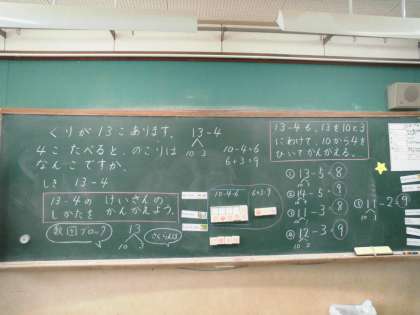 くりが13こあります。
4こたべると、のこりは
なんこですか。
しき 13-4
13-4の けいさんの
しかたを かんがえよう。
数図ブロック
13
10 3
さくらんぼ
13-4
10 3
10-4=6
6+3=9
10-4=6 6+3=9
13-4も、13を10と3
にわけて、10から4を
ひいてかんがえる。
① 13-5=8
② 14-5=9
③ 11-3=8
④ 12-3=9
10 2
⑤ 11-2=9